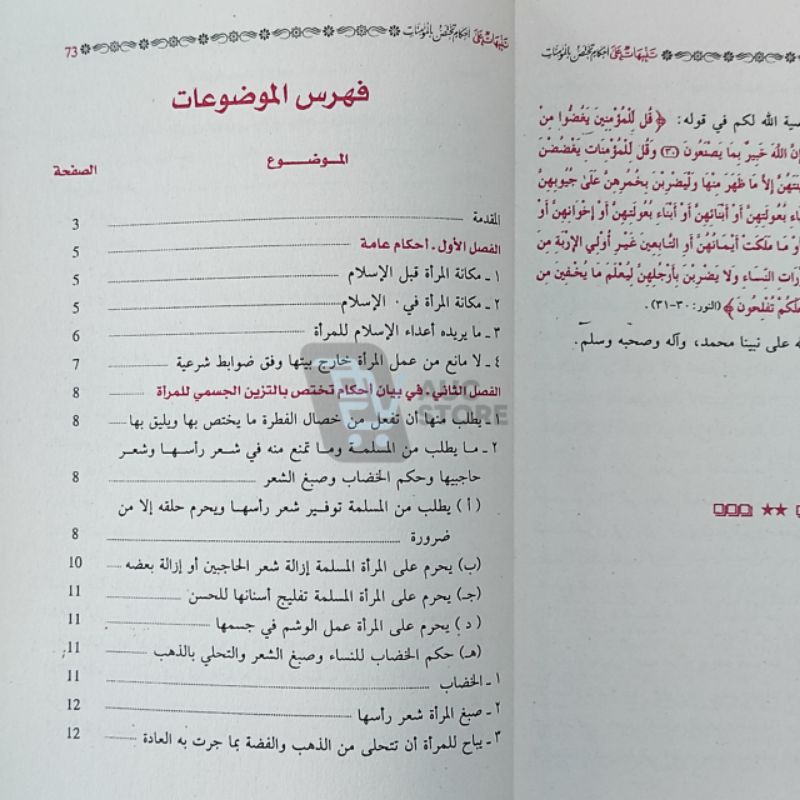 تنبيهات على أحكام تختص بالمؤمنات
صية الله لكم في قوله: ﴿قُل لِّلْمُؤْمِنِينَ يَغُضُّوا مِنْ
إِنَّ اللَّهَ خَبِيرٌ بِمَا يَصْنَعُونَ (٣٠) وَقُل لِّلْمُؤْمِنَاتِ يَغْضُضْنَ
ينَتَهُنَّ إِلاَّ مَا ظَهَرَ مِنْهَا وَلْيَضْرِبْنَ بِخُمُرِهِنَّ عَلَىٰ جُيُوبِهِنَّ
اءِ بُعُولَتِهِنَّ أَوْ أَبْنَائِهِنَّ أَوْ أَبْنَاءِ بُعُولَتِهِنَّ أَوْ إِخْوَانِهِنَّ أَوْ
أَوْ مَا مَلَكَتْ أَيْمَانُهُنَّ أَوِ التَّابِعِينَ غَيْرِ أُوْلِي الإِرْبَةِ مِنَ
رَاتِ النِّسَاءِ وَلا يَضْرِبْنَ بِأَرْجُلِهِنَّ لِيُعْلَمَ مَا يُخْفِينَ مِن
لَّكُمْ تُفْلِحُونَ﴾ (النور: ٣٠-٣١).
ه على نبينا محمد، وآله وصحبه وسلم.
تنبيهات على أحكام تختص بالمؤمنات 73
فهرس الموضوعات
الموضوع الصفحة
المقدمة 3
الفصل الأول. أحكام عامة 5
١ - مكانة المرأة قبل الإسلام 5
٢ - مكانة المرأة في٠ الإسلام 5
٣ - ما يريده أعداء الإسلام للمرأة 6
٤ - لا مانع من عمل المرأة خارج بيتها وفق ضوابط شرعية 7
الفصل الثاني. في بيان أحكام تختص بالتزين الجسمي للمرأة 8
١ - يطلب منها أن تفعل من خصال الفطرة ما يختص بها ويليق بها 8
٢ - ما يطلب من المسلمة وما تمنع منه في شعر رأسها وشعر
حاجبيها وحكم الخضاب وصبغ الشعر 8
(أ) يطلب من المسلمة توفير شعر رأسها ويحرم حلقه إلا من
ضرورة 8
(ب) يحرم على المرأة المسلمة إزالة شعر الحاجبين أو إزالة بعضه 10
(جـ) يحرم على المرأة المسلمة تفليج أسنانها للحسن 11
(د) يحرم على المرأة عمل الوشم في جسمها 11
(هـ) حكم الخضاب للنساء وصبغ الشعر والتحلي بالذهب 11
١ - الخضاب 11
٢ - صبغ المرأة شعر رأسها 12
٣ - يباح للمرأة أن تتحلى من الذهب والفضة بما جرت به العادة 12
AUC
STORE